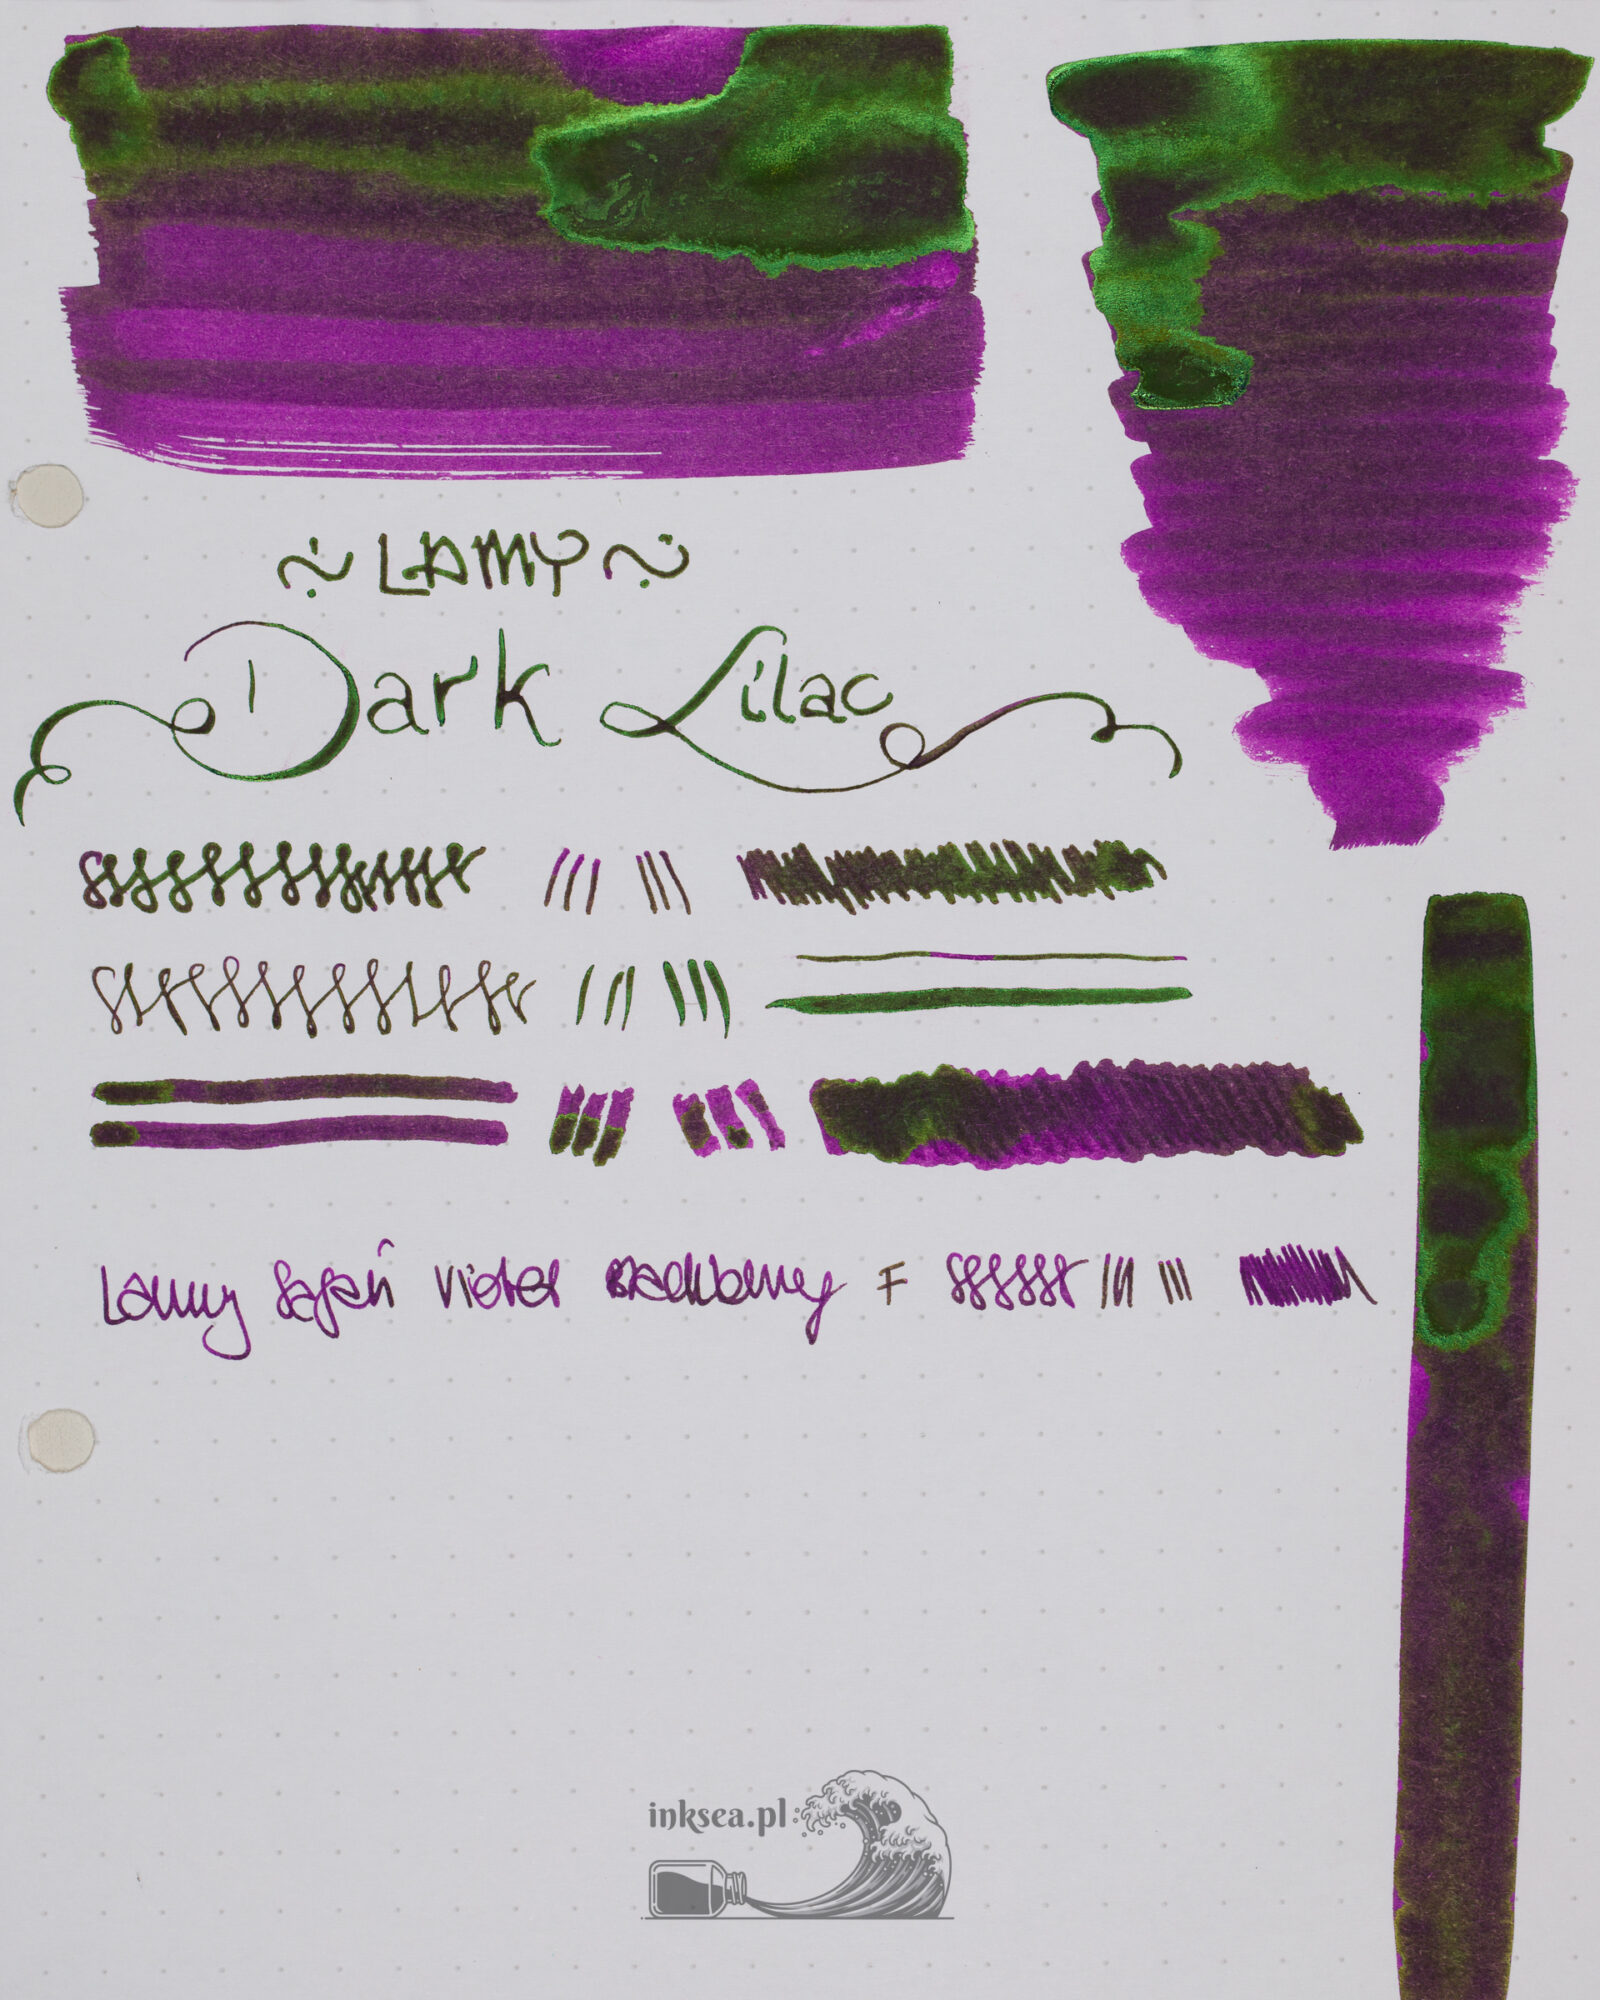 ~ LAMY ~
Dark Lilac
Lamy Safari Violet Blackberry F
inksea.pl